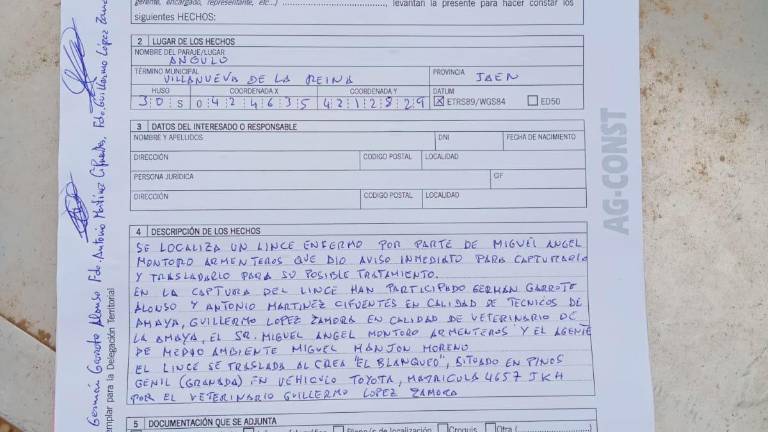 gerente, encargado, representante, etc...) ........................................, levantan la presente para hacer constar los
siguientes HECHOS:
2 LUGAR DE LOS HECHOS
NOMBRE DEL PARAJE/LUGAR
ANGULO
TÉRMINO MUNICIPAL
VILLANUEVA DE LA REINA
PROVINCIA
JAEN
HUSO COORDENADA X COORDENADA Y DATUM
30 S 0424635 4212829 ☒ ETRS89/WGS84 ☐ ED50
3 DATOS DEL INTERESADO O RESPONSABLE
NOMBRE Y APELLIDOS DNI FECHA DE NACIMIENTO
DIRECCIÓN CODIGO POSTAL LOCALIDAD
PERSONA JURÍDICA CIF
DIRECCIÓN CODIGO POSTAL LOCALIDAD
4 DESCRIPCIÓN DE LOS HECHOS
SE LOCALIZA UN LINCE ENFERMO POR PARTE DE MIGUEL ANGEL
MONTORO ARMENTEROS QUE DIO AVISO INMEDIATO PARA CAPTURARLO
Y TRASLADARLO PARA SU POSIBLE TRATAMIENTO.
EN LA CAPTURA DEL LINCE HAN PARTICIPADO GERMAN GARROTE
ALONSO Y ANTONIO MARTINEZ CIFUENTES EN CALIDAD DE TECNICOS DE
AMAYA, GUILLERMO LOPEZ ZAMORA EN CALIDAD DE VETERINARIO DE
LA AMAYA, EL SR. MIGUEL ANGEL MONTORO ARMENTEROS Y EL AGENTE
DE MEDIO AMBIENTE MIGUEL MANJON MORENO
EL LINCE SE TRASLADA AL CREA "EL BLANQUEO", SITUADO EN PINOS
GENIL (GRANADA) EN VEHICULO TOYOTA, MATRICULA 4657 JKH
POR EL VETERINARIO GUILLERMO LOPEZ ZAMORA
5 DOCUMENTACIÓN QUE SE ADJUNTA
Plano/s de localización Croquis Otra (
Germán Garrote Alonso Fdo. Antonio Martínez Cifuentes, Fdo. Guillermo López
emplar para la Delegación Territorial
AG-CONST